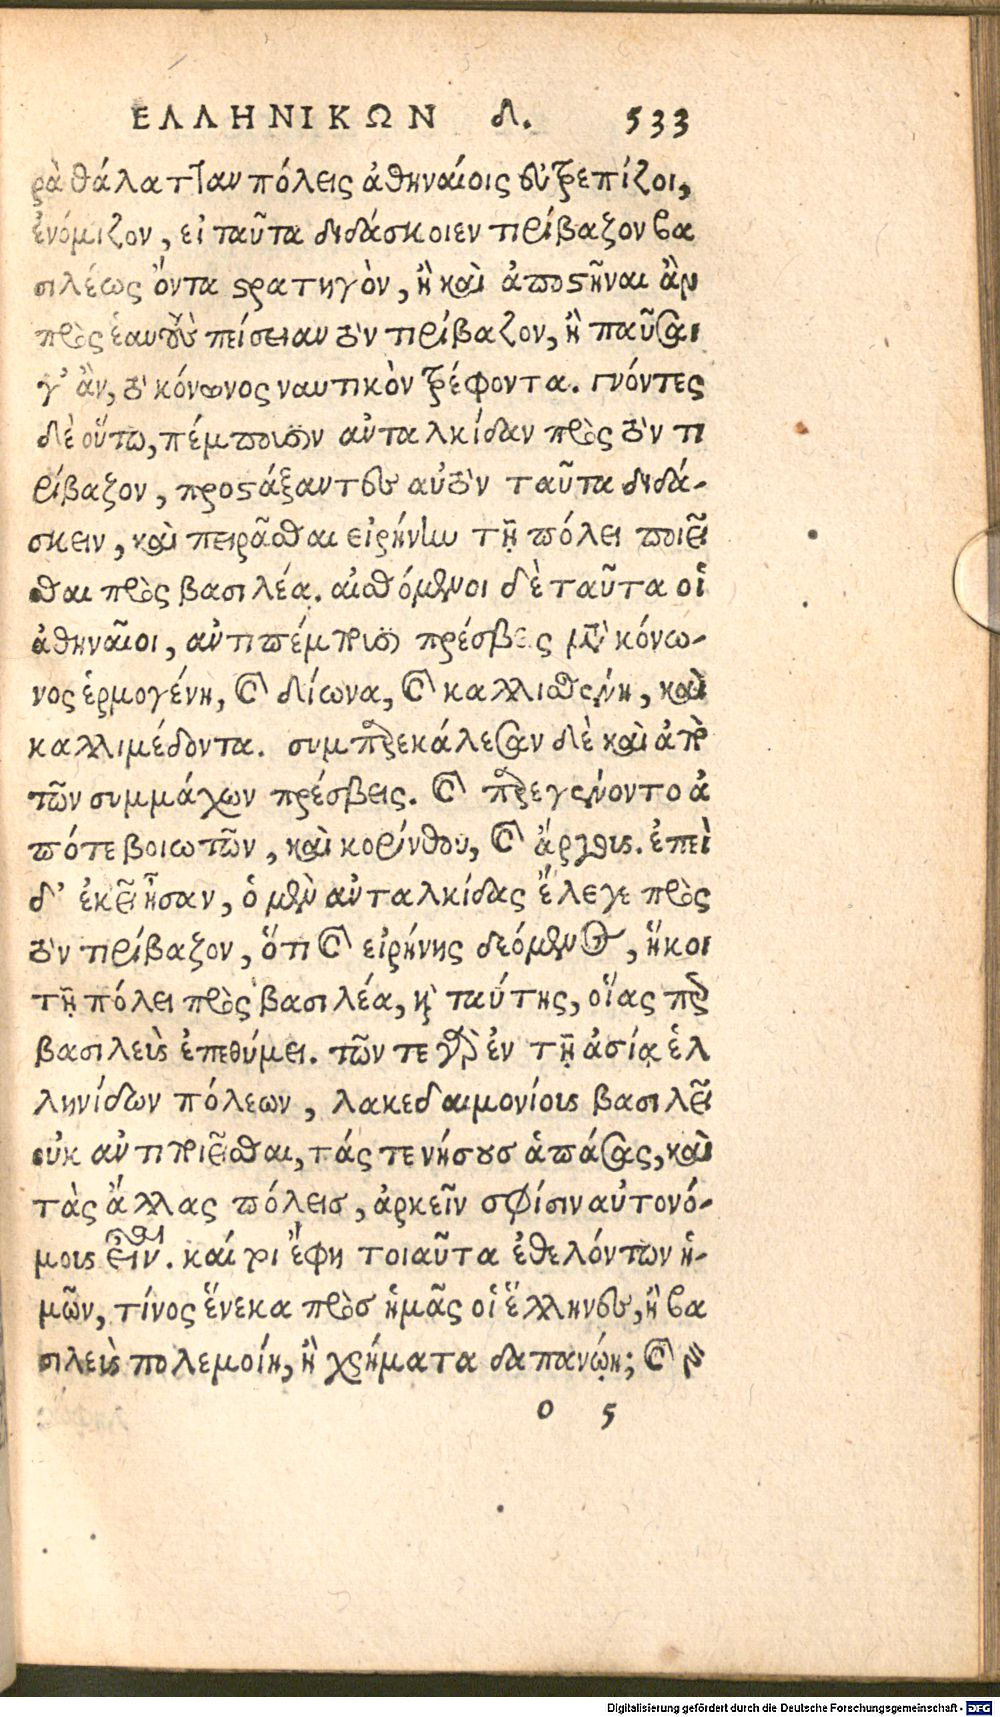 ΕΛΛΗΝΙΚΩΝ δ. 533
ρὰ θάλατ]αν πόλεις ἀθηναίοις εὐτρεπίζοι,
ἐνόμιζον, εἰ ταῦτα διδάσκοιεν τιρίβαζον βα
σιλέως ὄντα στρατηγὸν, ἢ καὶ ἀποστῆναι ἂν
πρὸς ἑαυτοὺς πείσειαν τὸν τιρίβαζον, ἢ παῦσαι
γ' ἂν, τὸ κόνωνος ναυτικὸν τρέφοντα. γνόντες
δὲ οὕτω, πέμπουσιν ἀνταλκίδαν πρὸς τὸν τι
ρίβαζον, προστάξαντες αὐτὸν ταῦτα διδά-
σκειν, καὶ πειρᾶσθαι εἰρήνην τῇ πόλει ποιεῖ
σθαι πρὸς βασιλέα. αἰσθόμενοι δὲ ταῦτα οἱ
ἀθηναῖοι, ἀντιπέμπουσι πρέσβεις μετὰ κόνω-
νος ἑρμογένη, καὶ δίωνα, καὶ καλλισθένη, καὶ
καλλιμέδοντα. συμπαρεκάλεσαν δὲ καὶ ἀπὸ
τῶν συμμάχων πρέσβεις. καὶ παρεγένοντο ἀ
πότε βοιωτῶν, καὶ κορίνθου, καὶ ἄργους. ἐπεὶ
δ' ἐκεῖ ἦσαν, ὁ μὲν ἀνταλκίδας ἔλεγε πρὸς
τὸν τιρίβαζον, ὅτι καὶ εἰρήνης δεόμενος, ἥκοι
τῇ πόλει πρὸς βασιλέα, καὶ ταύτης, οἵας περ
βασιλεὺς ἐπεθύμει. τῶν τε γὰρ ἐν τῇ ἀσίᾳ ἑλ
ληνίδων πόλεων, λακεδαιμονίους βασιλεῖ
οὐκ ἀντιποιεῖσθαι, τάς τε νήσους ἁπάσας, καὶ
τὰς ἄλλας πόλεις, ἀρκεῖν σφίσιν αὐτονό-
μους εἶναι. καί τοι ἔφη τοιαῦτα ἐθελόντων ἡ-
μῶν, τίνος ἕνεκα πρὸς ἡμᾶς οἱ ἕλληνες, ἢ βα
σιλεὺς πολεμοίη, ἢ χρήματα δαπανῴη; καὶ
ο 5
Digitalisierung gefördert durch die Deutsche Forschungsgemeinschaft - DFG